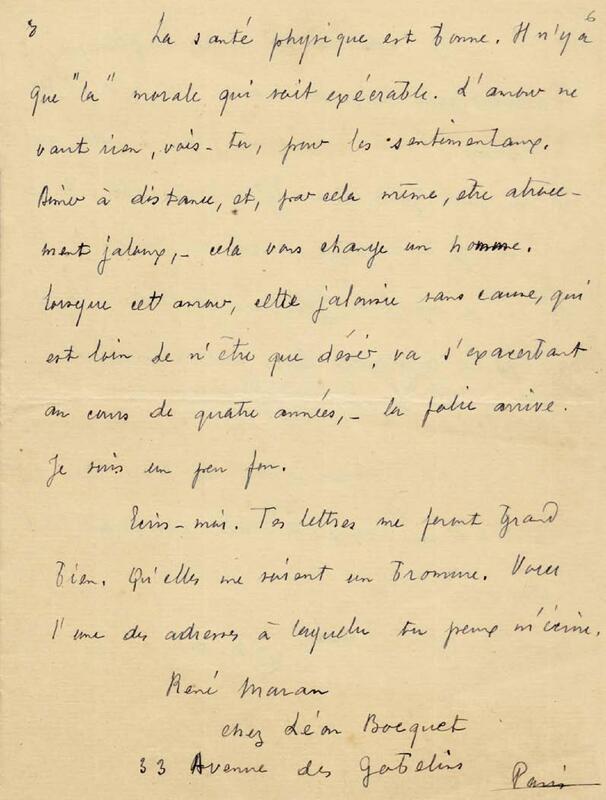 3 6
La santé physique est bonne. Il n'y a
que "la" morale qui soit exécrable. L'amour ne
vaut rien, vois-tu, pour les sentimentaux.
Aimer à distance, et, par cela même, être atroce-
ment jaloux, – cela vous change un homme.
Lorsque cet amour, cette jalousie sans cause, qui
est loin de n'être que désir, va s'exacerbant
au cours de quatre années, – la folie arrive.
Je suis un peu fou.
Écris-moi. Tes lettres me feront grand
bien. Qu'elles me soient un bromure. Voici
l'une des adresses à laquelle tu peux m'écrire.
René Maran
chez Léon Bocquet
33 Avenue des Gobelins
Paris